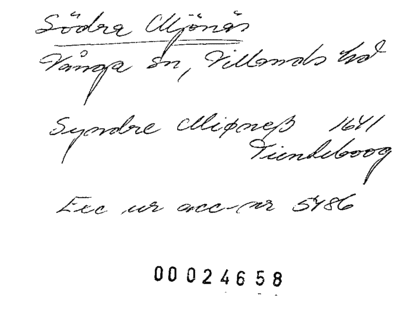 Södra Mjönäs
Vånga sn, Villands hd
Syndre Miøneß 1641
Tiendeboog
Exc ur acc-nr 5486
00024658